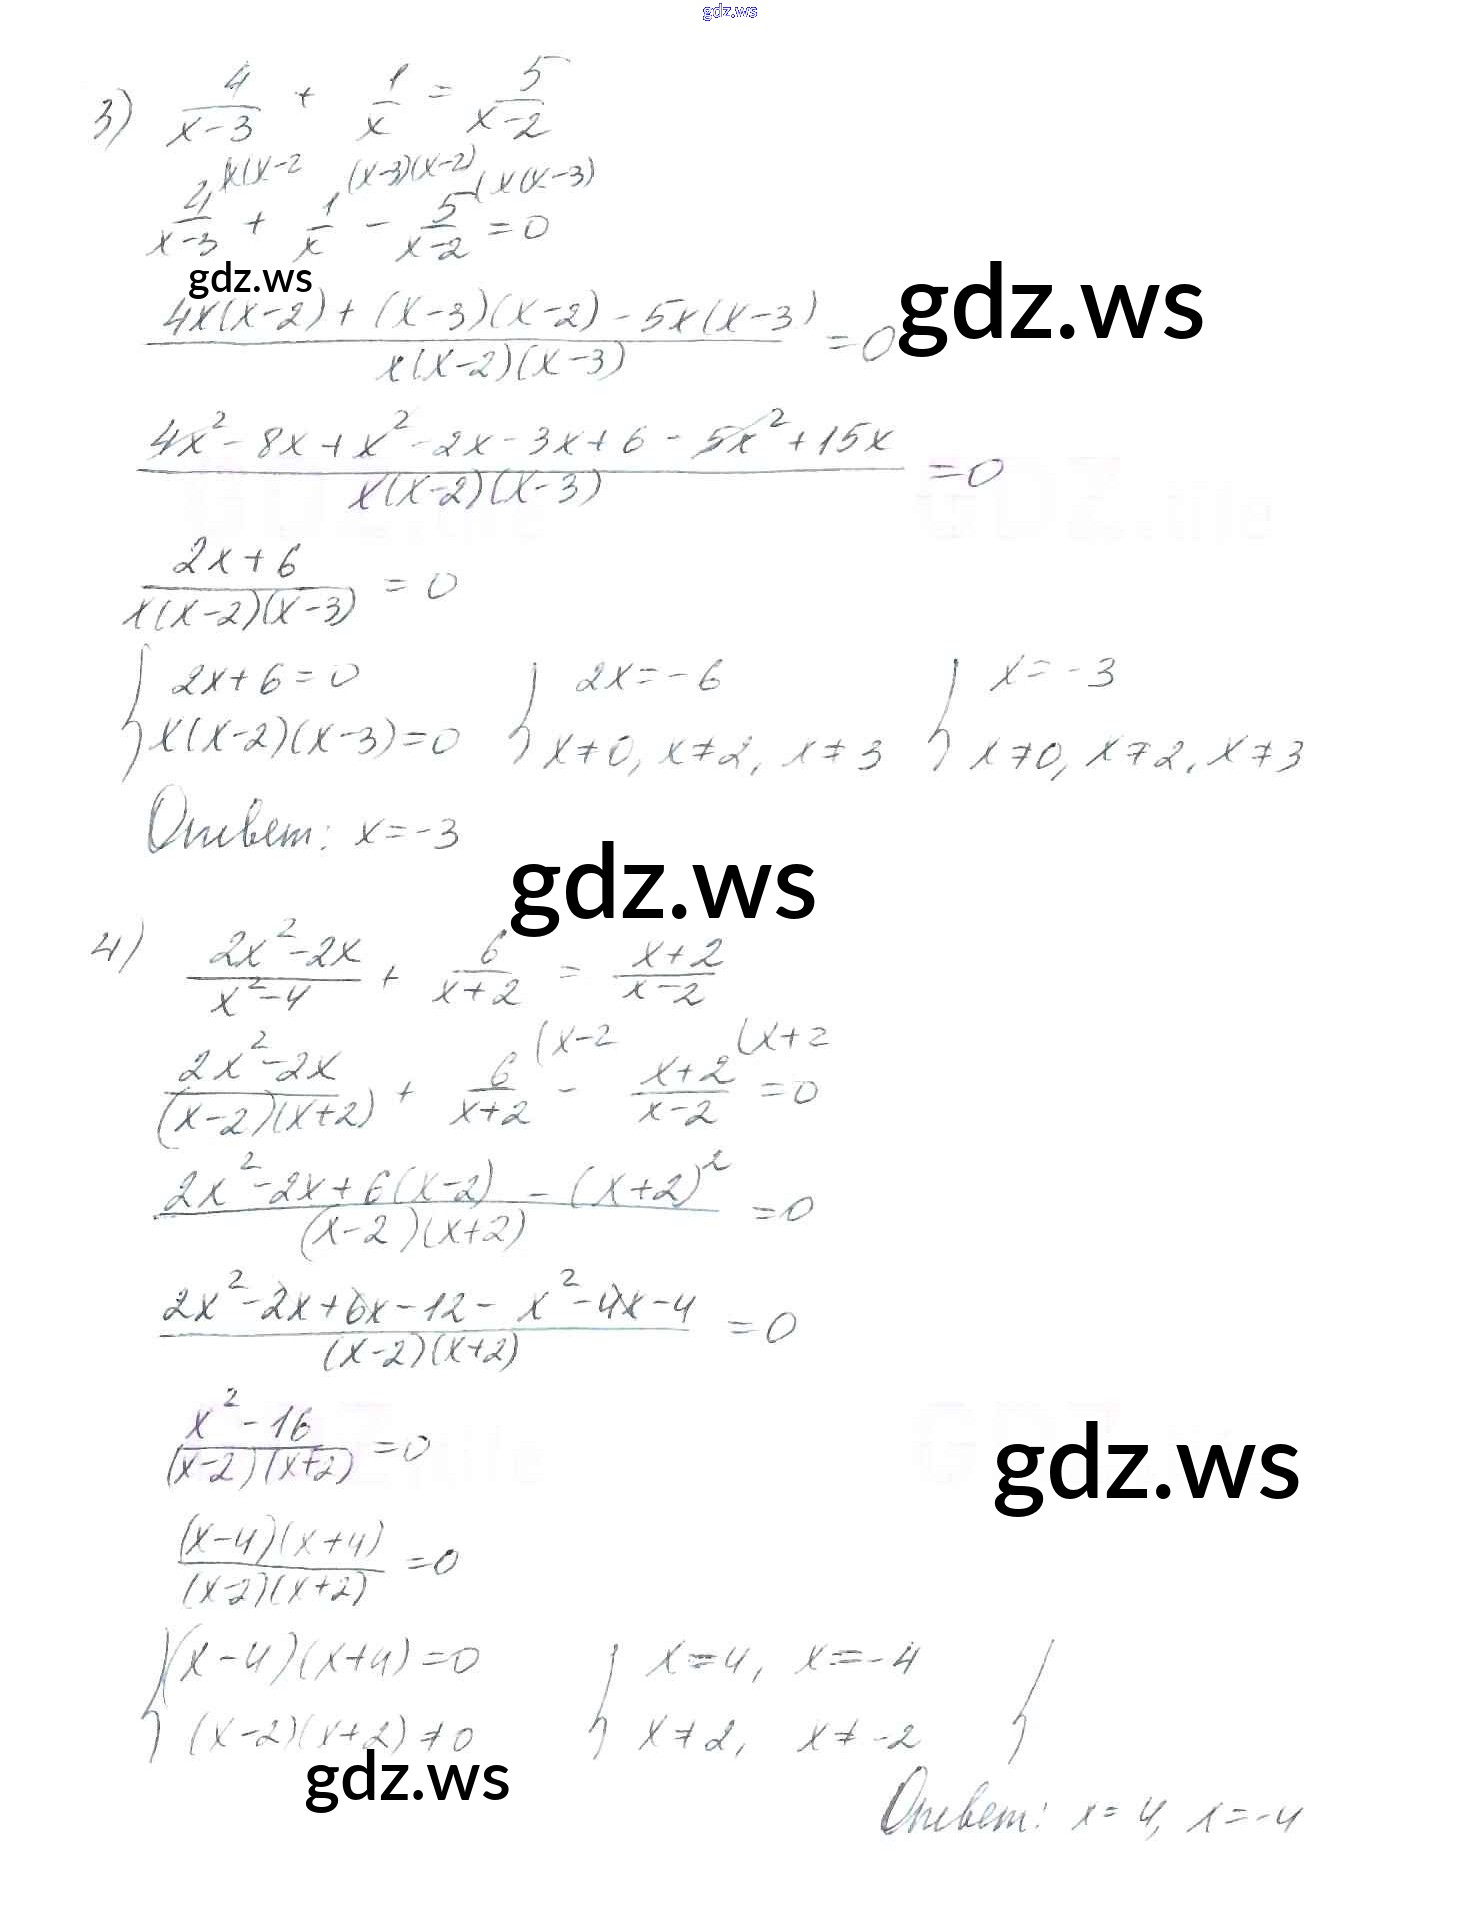 gdz.ws
3) 4/(x-3) + 1/x = 5/(x-2)
4/(x-3) (x(x-2 + 1/x (x-3)(x-2) - 5/(x-2) (x(x-3) = 0
gdz.ws
(4x(x-2) + (x-3)(x-2) - 5x(x-3))/(x(x-2)(x-3)) = 0
gdz.ws
(4x² - 8x + x² - 2x - 3x + 6 - 5x² + 15x)/(x(x-2)(x-3)) = 0
GDZ.life GDZ.life
(2x + 6)/(x(x-2)(x-3)) = 0
{ 2x + 6 = 0 { 2x = -6 { x = -3
x(x-2)(x-3) = 0 x ≠ 0, x ≠ 2, x ≠ 3 x ≠ 0, x ≠ 2, x ≠ 3
Ответ: x = -3
gdz.ws
4) (2x² - 2x)/(x² - 4) + 6/(x+2) = (x+2)/(x-2)
(2x² - 2x)/((x-2)(x+2)) + 6/(x+2) (x-2 - (x+2)/(x-2) (x+2 = 0
(2x² - 2x + 6(x-2) - (x+2)²)/((x-2)(x+2)) = 0
(2x² - 2x + 6x - 12 - x² - 4x - 4)/((x-2)(x+2)) = 0
(x² - 16)/((x-2)(x+2)) = 0
gdz.ws
((x-4)(x+4))/((x-2)(x+2)) = 0
{ (x-4)(x+4) = 0 { x = 4, x = -4 {
(x-2)(x+2) ≠ 0 x ≠ 2, x ≠ -2
gdz.ws
Ответ: x = 4, x = -4